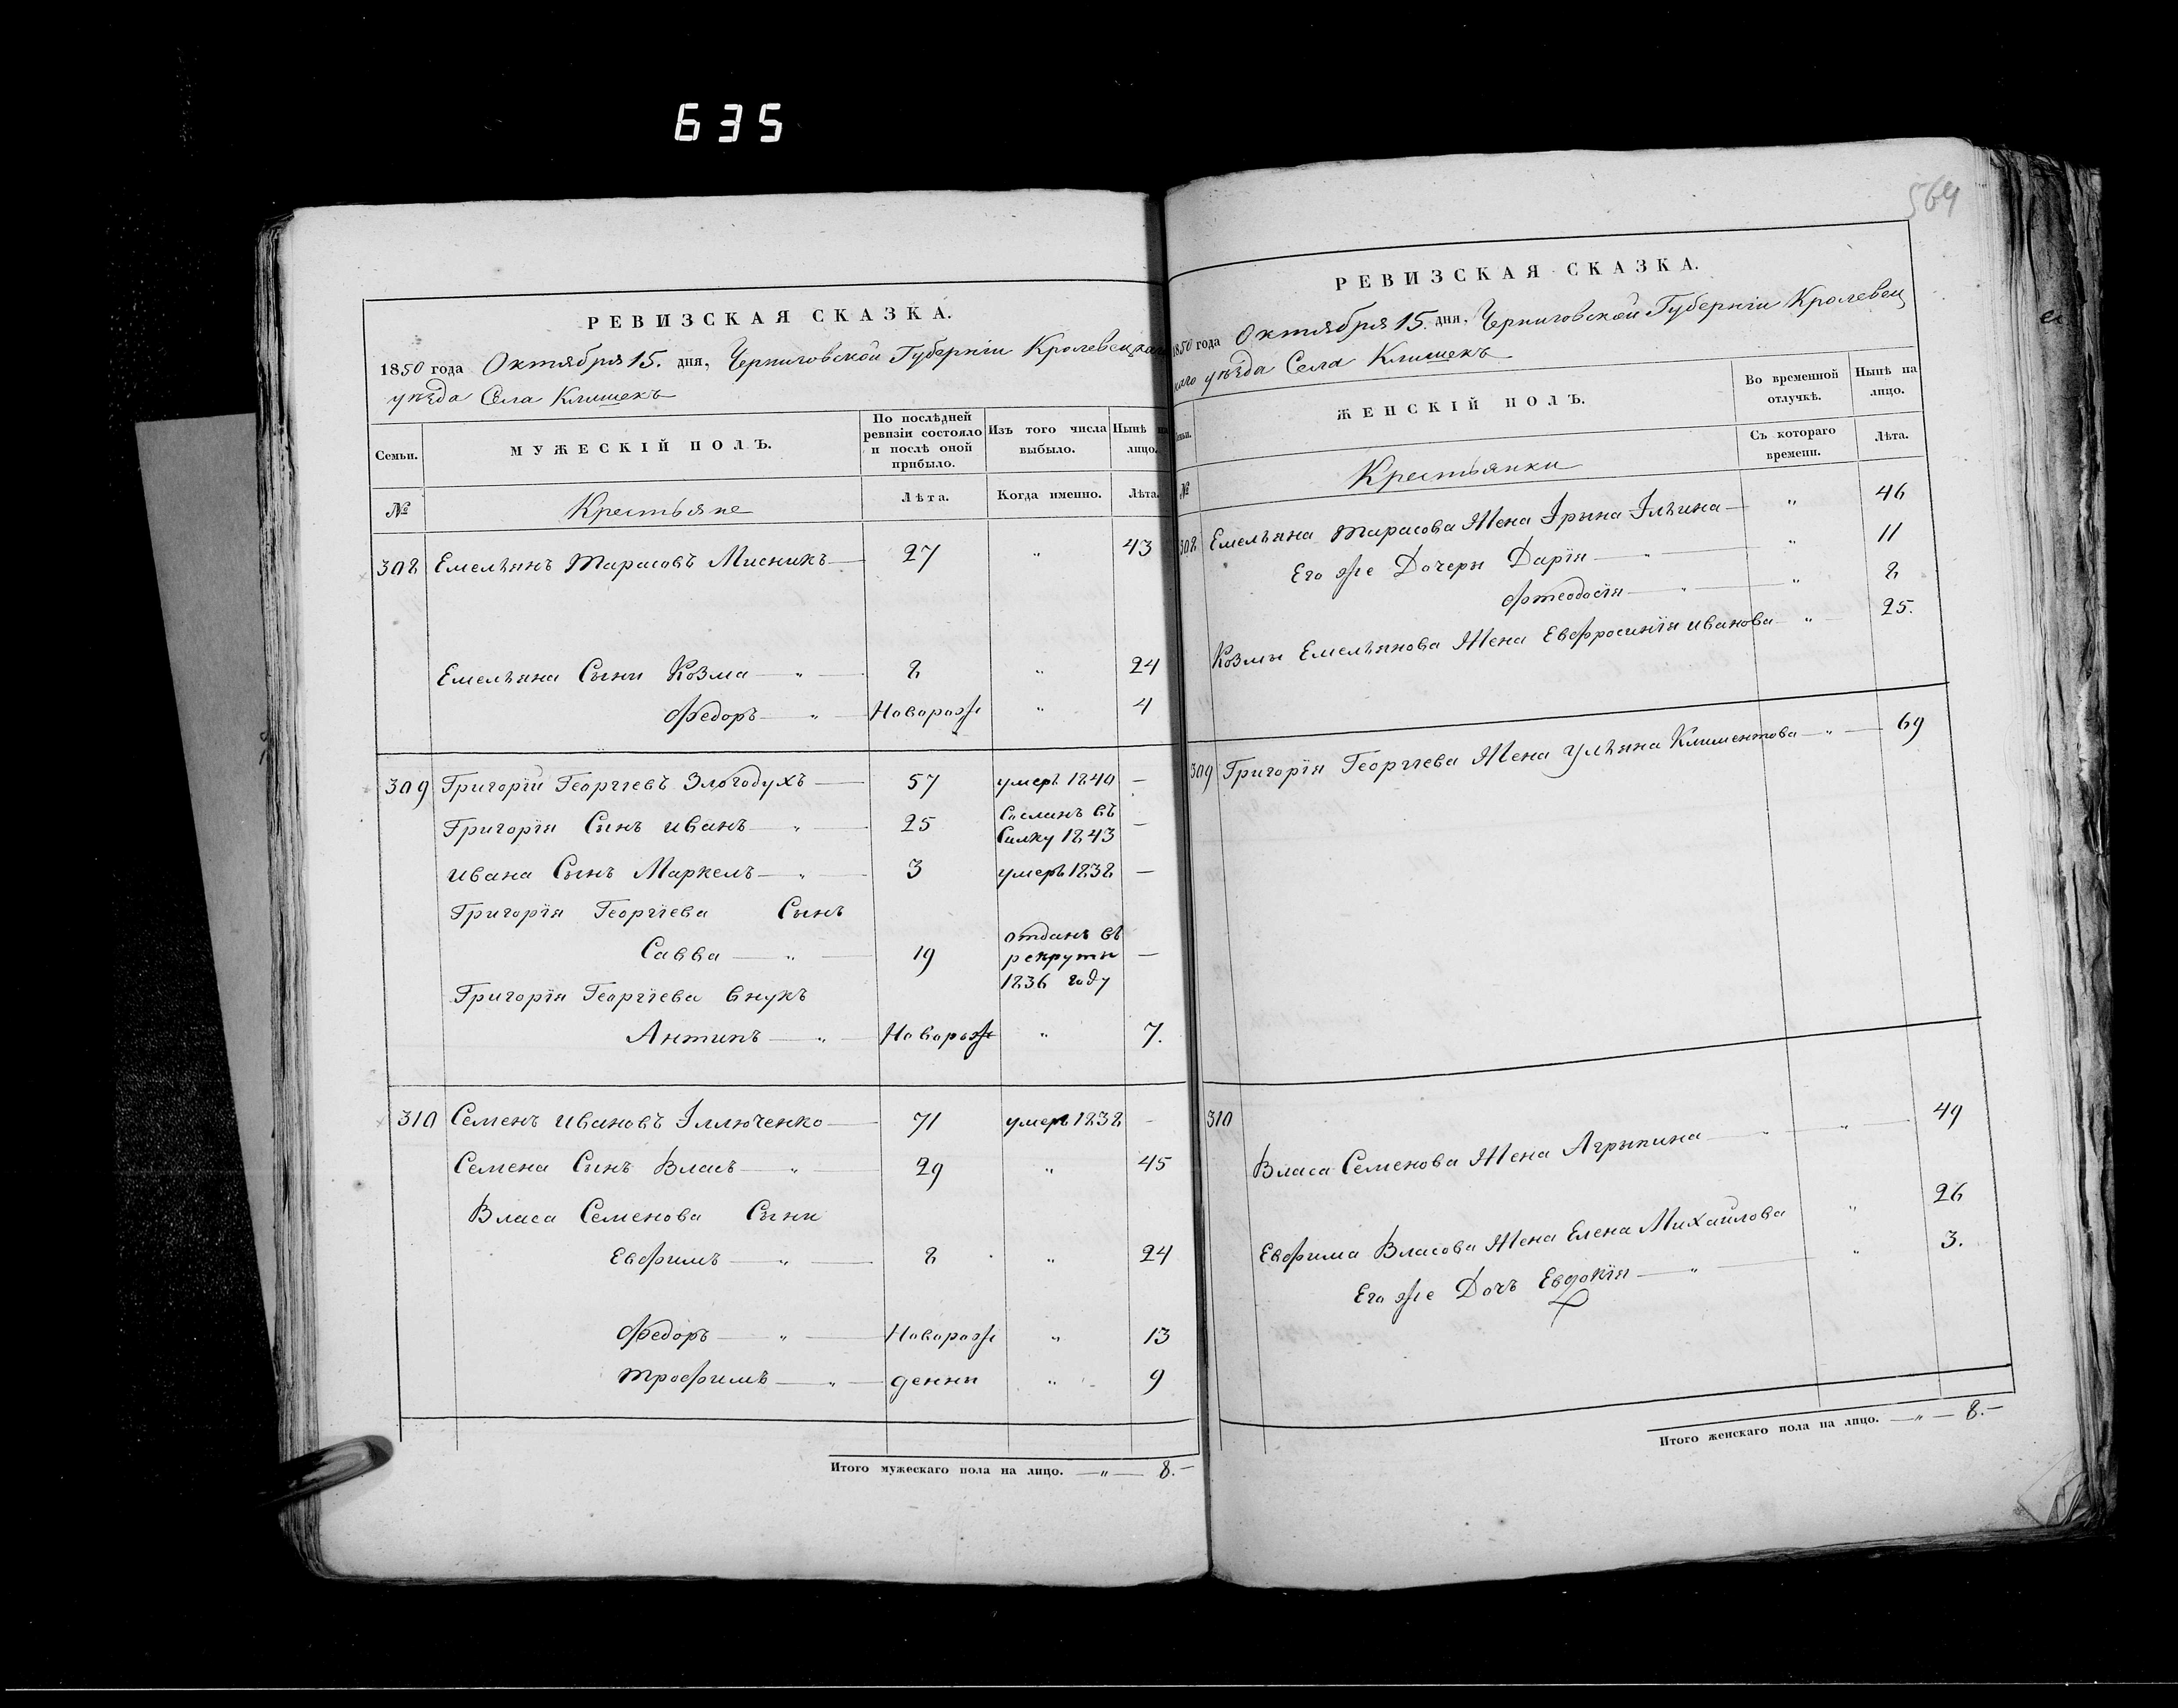 635
564
РЕВИЗСКАЯ СКАЗКА.
1850 года Октября 15. дня, Черниговской Губерніи Кролевецкаго
уѣзда Села Клишекъ
Семьи.
МУЖЕСКІЙ ПОЛЪ.
По послѣдней ревизіи состояло и послѣ оной прибыло.
Изъ того числа выбыло.
Нынѣ на лицо.
№
Крестьяне
Лѣта.
Когда именно.
Лѣта.
308 Емельянъ Тарасовъ Мисникъ — 27 " 43
Емельяна Сыни Козма — " — 8 " 24
Федоръ — " — Новорож " 4
309 Григорій Георгіевъ Злогодухъ — 57 умеръ 1840 —
Григорія Сынъ иванъ — " — 25 Сосланъ въ Силку 1843 —
ивана Сынъ Маркелъ — " — 3 умеръ 1838 —
Григорія Георгіева Сынъ
Савва — " — 19 отданъ въ рекруты 1836 году —
Григорія Георгіева внукъ
Антипъ — " — Новорож " 7.
310 Семенъ ивановъ Іллюченко — 71 умеръ 1838 -
Семена Сынъ Власъ — " — 29 " 45
Власа Семенова Сыни
Евфимъ — " — 8 " 24
Федоръ — " — Новорож " 13
Трофимъ — " — денни " 9
Итого мужескаго пола на лицо. — " — 8. —
РЕВИЗСКАЯ СКАЗКА.
1850 года Октября 15. дня, Черниговской Губерніи Кролевец
каго уѣзда Села Клишекъ
Семьи.
ЖЕНСКІЙ ПОЛЪ.
Во временной отлучкѣ.
Нынѣ на лицо.
№
Крестьянки
Съ котораго времени.
Лѣта.
308 Емельяна Тарасова Жена Ірына Ільина — " 46
Его же Дочери Дарія — " — " 11
Фтеодосія — " — " 8
Козмы Емельянова Жена Евфросинія иванова — " — 25.
309 Григорія Георгіева Жена Ульяна Климентова — " — 69
310
Власа Семенова Жена Агрыпина — " — " — 49
Евфима Власова Жена Елена Михайлова " 26
Его же Дочъ Евдокія — " — " 3.
Итого женскаго пола на лицо. — " — 8. —